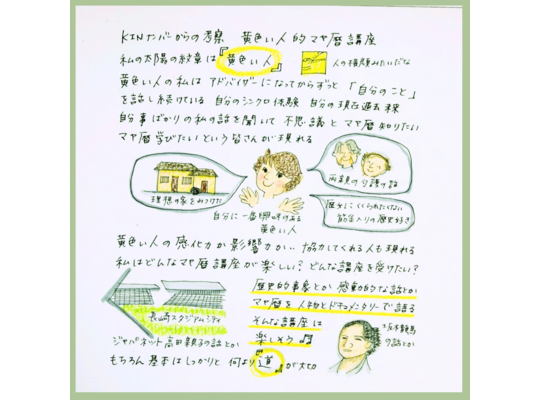 KINナンバーからの考察 黄色い人的マヤ暦講座
私の太陽の紋章は『黄色い人』 人の横顔みたいだな
黄色い人の私は アドバイザーになってからずっと 「自分のこと」
を話し続けている 自分のシンクロ体験 自分の現在過去未来
自分事ばかりの私の話を聞いて 不思議と マヤ暦 知りたい
マヤ暦 学びたい という皆さんが現れる
理想の家をみつけた
両親の介護の話
歴女にくくられたくない
筋金入りの歴史好き
自分に一番興味のある
黄色い人
黄色い人の感化力か影響力か、、協力してくれる人も現れる
私はどんなマヤ暦講座が楽しい? どんな講座を受けたい?
歴史的事象とか 感動的な話とか
マヤ暦を人物とドキュメンタリーで語る
そんな講座は
楽しそう♫
長崎スタジアムシティ
ジャパネット高田親子の話とか
坂本龍馬
の話とか
もちろん 基本はしっかりと 何より『道』が大切